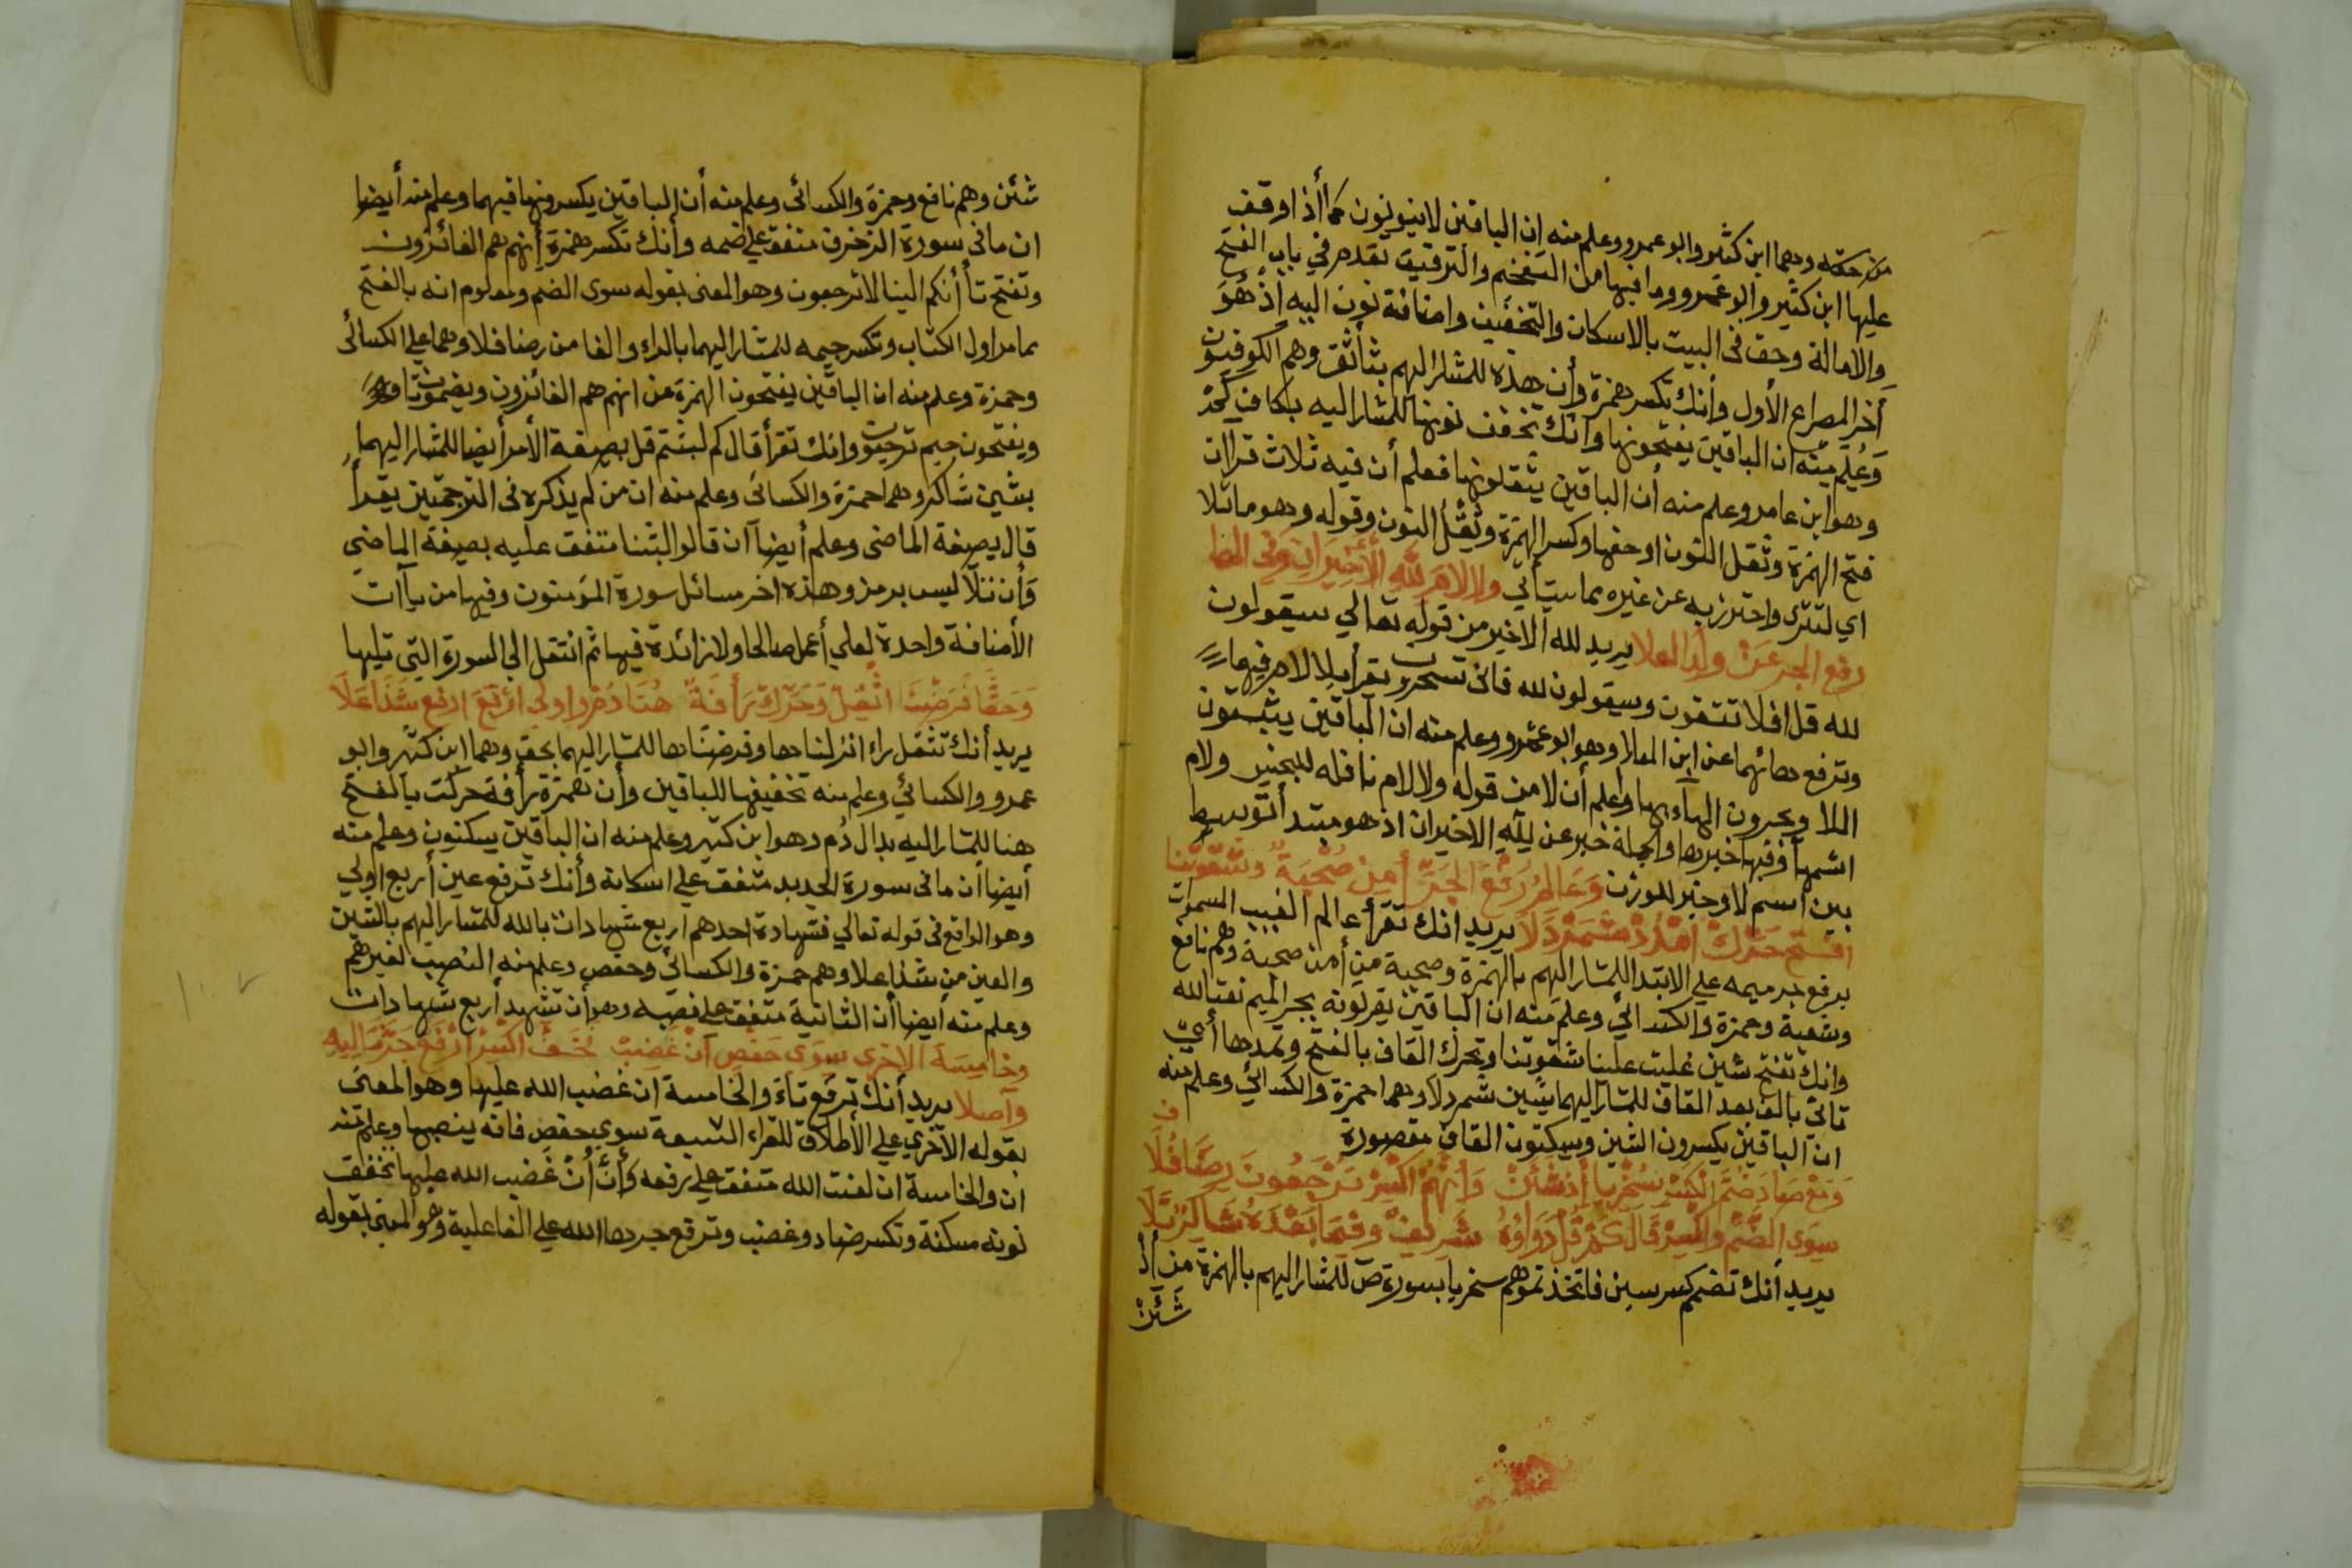 من حقه وهما ابن كثير وابو عمرو وعلم منه ان الباقين لا ينونون كما أذا وقف
عليها ابن كثير وابو عمرو وما فيها من التفخيم والترقيق تقدم في باب الفتح
والامالة وحق في البيت بالاسكان والتخفيف واضافة نون اليه إذ هُوَ
أخر المصراع الأول وأنك تكسر همزة وأن هذه للمشار اليهم بثا ثق وهم الكوفيون
وَعُلِم مِنْه ان الباقين يفتحونها وأنك تخفف نونها للمشار اليه بكاف كَمْ
وهو ابن عامر وعلم منه أن الباقين يثقلونها فعلم أن فيه ثلاث قراآت
فتح الهمزة وثقل النون او خفها وكسر الهمزة وثقل النون وقوله وهو ما تلا
اي لتترى واحترز به عن غيره مما سيأتي والام لله الأخيران وفي الها
رفع الجر عن ولد العلا يريد لله الاخير من قوله تعالي سيقولون
لله قل افلا تتقون وسيقولون لله فانى تسحرون تقرأ بلا لام فيهما
وترفع هائهما عن ابن العلا وهو ابو عمرو وعلم منه ان الباقين يثبتون
اللا ويجرون الهاء بها واعلم أن لا من قوله ولا لام نافله للجنس ولام
اسمها وفيها خبرها والجملة خبر عن لله الاخيران اذ هو مبتدا توسط
بين اسم لا وخبر للوزن وَعَالِمُ رَفْعُ الجَرِّ أمِن صُحْبَةٍ وشقوتنا
افتح حَرِّكْ امْدُدْ شمردَلَا يريد انك تقرأ عالم الغيب السموات
برفع جر ميمه علي الابتدا للمشار اليهم بالهمزة وصحبة من أمن صحبة وهم نافع
وشعبة وحمزة والكسائي وعلم منه ان الباقين يقرئونه بجر الميم نعتا لله
وانك تفتح شين غلبت علينا شقوتنا وتحرك القاف بالفتح وتمدها أي
تاتى بالف بعد القاف للمشار اليهما بشين شمردلا وهما حمزة والكسائي وعلم منه
ان الباقين يكسرون الشين ويسكنون القاف مقصورة
وَمَعْ صَادَ ضَمُّ الكَسْرِ سُخْرِيا أذ شَئِنْ وَانَّهُم اكْسِرْ تَرْجِعُونَ رِضًا فُلَا
سِوَى الضَّمِّ واكْسِرْ قَالَ كَمْ قُلْ دَوَاؤُهُ شَرِيفٌ وَقَمَا بَعْدَهُ شَاكِرٌ تَلَا
يريد أنك تضم كسر سين فاتخذتموهم سخريا بسورة صٓ للمشار اليهم بالهمزة من أذ
شَئِنْ
شئن وهم نافع وحمزة والكسائى وعلم منه أن الباقين يكسرونها فيهما وعلم منه أيضا
ان ما فى سورة الزخرف متفق علي ضمه وأنك تكسر همزة إنهم هم الفائزون
وتفتح تا أنكم الينا لا ترجعون وهو المعنى بقوله سوى الضم ومعلوم انه بالفتح
مما مر اول الكتاب وتكسر جيمه للمشار اليهما بالراء والفا من رضا فلا وهما علي الكسائى
وحمزة وعلم منه ان الباقين يفتحون الهمزة من انهم هم الفائزون ويضمون تا
ويفتحون جيم ترجعون وانك تقرأ قال كم لبثتم قل بصيغة الأمر أيضا للمشار اليهما
بشين شاكر وهما حمزة والكسائى وعلم منه ان من لم يذكره فى الترجمتين يقرأ
قال بصيغة الماضى وعلم أيضا آن قالوا لبثنا متفق عليه بصيغة الماضي
وَأن نتلا ليس برمز وهذه اخر مسائل سورة المؤمنون وفيها من ياآت
الأضافة واحدة لعلي أعمل صالحا ولا زائدة فيها ثم انتقل الي السورة التي تليها
وَحَقٌّ فَرَضْنَا اثْقِلْ وَحَرِّكْ رَأفَةٌ هُنَا دُمْ واولي اربَعَ ارفع شَذًا عَلَا
يريد أنك تثقل راء انزلناها وفرضناها للمشار اليهما بحق وهما ابن كثير وابو
عمرو والكسائي وعلم منه تخفيفها للباقين وأن همزة رأفة حركت بالفتح
هنا للمشار اليه بدال دُم وهو ابن كثير وعلم منه ان الباقين يسكنون وعلم منه
أيضا أن ما فى سورة الحديد متفق علي اسكانه وأنك ترفع عين أربع اولي
وهو الواقع فى قوله تعالي فشهادة احدهم اربع شهادات بالله للمشار اليهم بالشين
والعين من شذا علا وهم حمزة والكسائي وحفص وعلم منه النصب لغيرهم
وعلم منه أيضا أن الثانية متفق علي نصبه وهو أن تشهد أربع شهادات
وخامِسَة الاخرى سِوَى حَفْصٍ أنْ غَضِبْ تُخَفُّ اكْسِرِ ارْفَعْ جَرَّهَا ليه
وآصلا يريد أنك ترفع تاء والخامسة ان غضب الله عليها وهو المعنى
بقوله الآخري علي الأطلاق للقراء السبعة سوي حفص فانه ينصبها وعلم منه
ان والخامسة ان لعنت الله متفق علي رفعه وَأنَّ أنْ غَضِب الله عليها تخفف
نونه مسكنة وتكسر ضاد وغضب وترفع جرها الله علي الفاعلية وهو المعنى بقوله